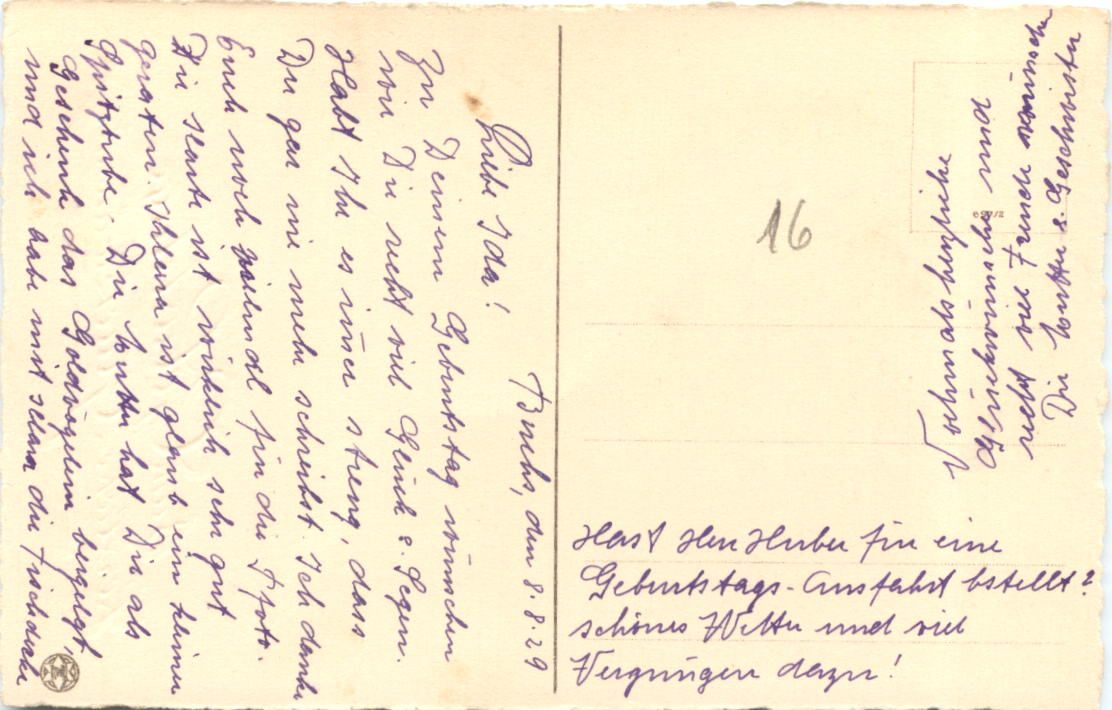 Buchs, den 8.8.29
Liebe Ida!
Zu Deinem Geburtstag wünschen
wir Dir recht viel Glück & Segen.
Habt Ihr es immer streng, dass
Du gar nie mehr schreibst. Ich danke
Euch noch vielmal für die Foto.
Die Karte ist wirklich sehr gut
geraten. ist glaub ein kleiner
Spitzbube. Die Mutter hat Dir als
Geschenk das Goldvögelein beigelegt,
und ich habe mit die Tischdecke
Hast Herr Huber für eine
Geburtstags-Ausfahrt bstellt?
schönes Wetter und viel
Vergnügen dazu!
Nochmals herzliche
Glückwünsche und
recht viel Freude wünschen
Die Mutter & Geschwister
16